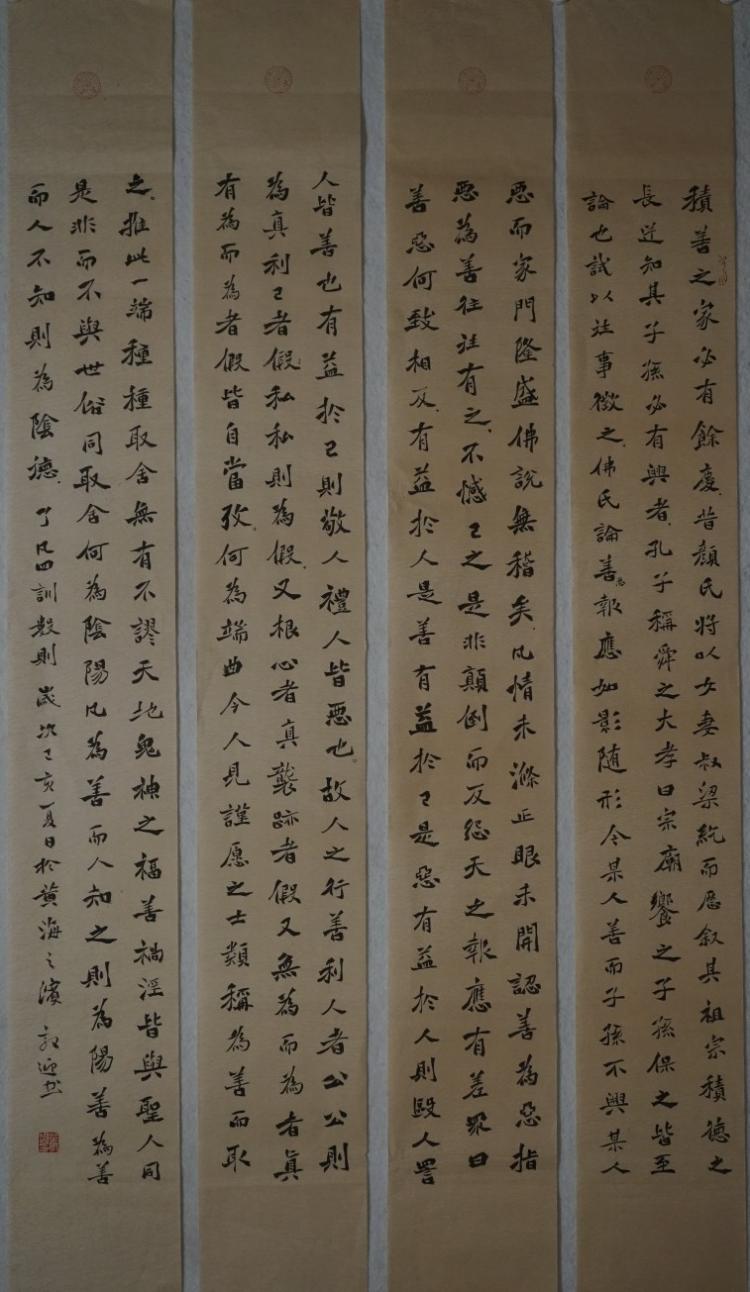 積善之家必有餘慶昔顏氏將以女妻叔梁紇而歷叙其祖宗積德之
長逆知其子孫必有興者孔子稱舜之大孝曰宗廟饗之子孫保之皆至
論也試以往事徵之佛氏論善惡報應如影随形今某人善而子孫不興某人
惡而家門隆盛佛說無稽矣凡情未滌正眼未開認善為惡指
惡為善往往有之不憾己之是非顛倒而反怨天之報應有差眾曰
善惡何致相反有益於人是善有益於己是惡有益於人則毆人詈
人皆善也有益於己則敬人禮人皆惡也故人之行善利人者公公則
為真利己者假私私則為假又根心者真襲跡者假又無為而為者真
有為而為者假皆自當攷何為端曲今人見謹愿之士類稱為善而取
之推此一端種種取舍無有不謬天地鬼神之福善禍淫皆與聖人同
是非而不與世俗同取舍何為陰陽凡為善而人知之則為陽善為善
而人不知則為陰德了凡四訓數則歲次乙亥夏日於黃海之濱